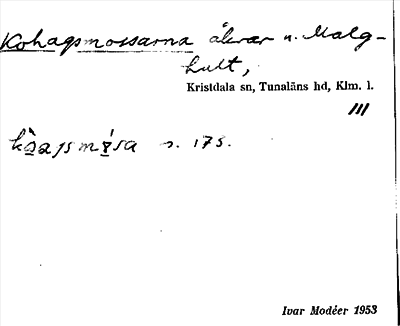 Kohagsmossarna åkrar u. Malg-
hult,
Kristdala sn, Tunaläns hd, Klm. l.
III
s. 175.
Ivar Modéer 1953